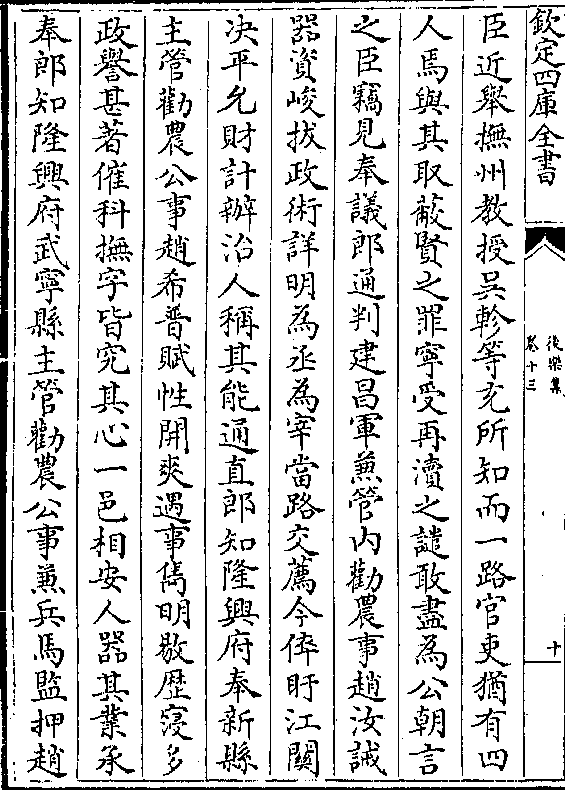 欽定四庫全書
後樂集
卷十三
十
臣近舉撫州教授吳軫等充所知而一路官吏猶有四
人焉與其取蔽賢之罪寧受再瀆之譴敢盡為公朝言
之臣竊見奉議郎通判建昌軍兼管内勸農事趙汝誡
器資峻拔政術詳明為丞為宰當路交薦今倅盱江闗
决平允財計辦治人稱其能通直郎知隆興府奉新縣
主管勸農公事趙希普賦性開爽遇事雋明敭歴寖多
政譽甚著催科撫字皆究其心一邑相安人器其業承
奉郎知隆興府武寧縣主管勸農公事兼兵馬監押趙